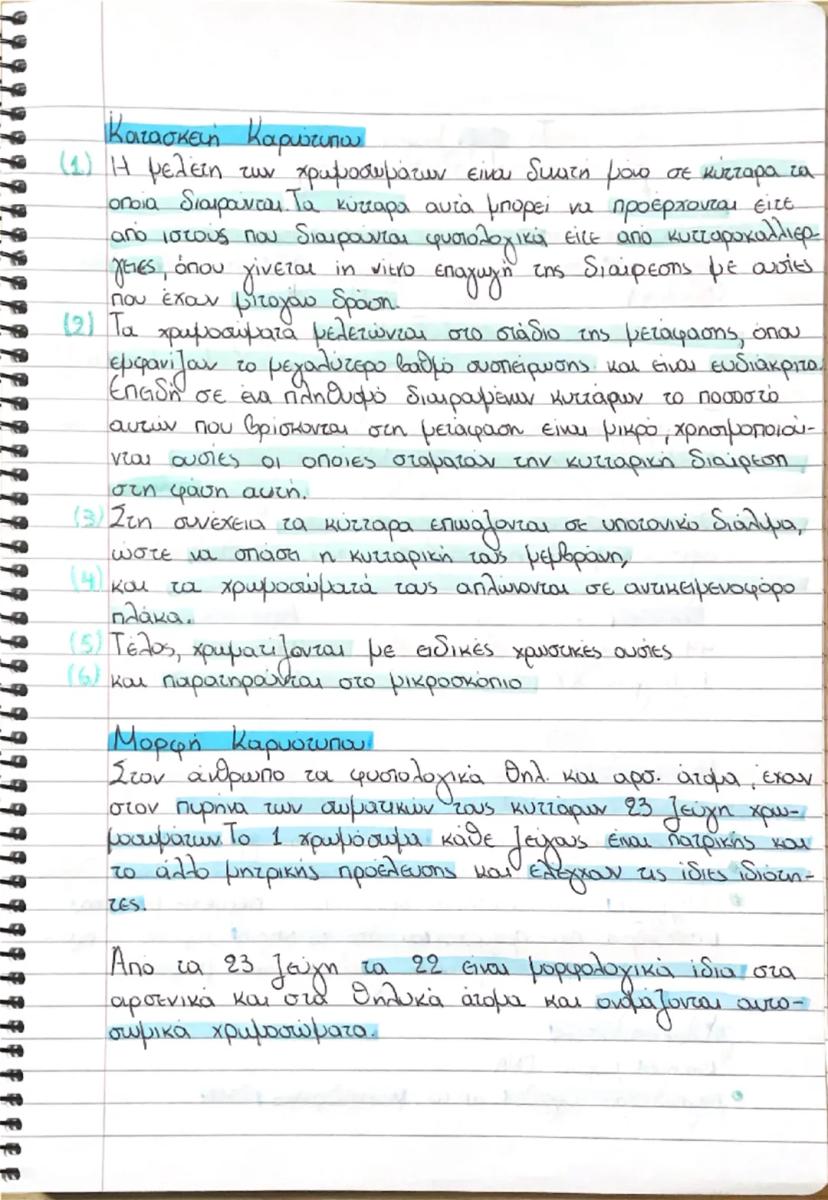 Κατασκευή Καρυότυπου
(1) Η μελέτη των χρωμοσωμάτων είναι δυνατή μόνο σε κύτταρα τα
οποία διαιρούνται. Τα κύτταρα αυτά μπορεί να προέρχονται είτε
από ιστούς που διαιρούνται φυσιολογικά είτε από κυτταροκαλλιέρ-
γειες, όπου γίνεται in vitro επαγωγή της διαίρεσης με ουσίες
που έχουν μιτογόνο δράση.
(2) Τα χρωμοσώματα μελετώνται στο στάδιο της μετάφασης, όπου
εμφανίζουν το μεγαλύτερο βαθμό συσπείρωσης και είναι ευδιάκριτα.
Επειδή σε ένα πληθυσμό διαιρουμένων κυττάρων το ποσοστό
αυτών που βρίσκονται στη μετάφαση είναι μικρό, χρησιμοποιού-
νται ουσίες οι οποίες σταματούν την κυτταρική διαίρεση
στη φάση αυτή.
(3) Στη συνέχεια τα κύτταρα επωάζονται σε υποτονικό διάλυμα,
ώστε να σπάσει η κυτταρική τους μεμβράνη,
(4) και τα χρωμοσώματά τους απλώνονται σε αντικειμενοφόρο
πλάκα.
(5) Τέλος, χρωματίζονται με ειδικές χρωστικές ουσίες
(6) και παρατηρούνται στο μικροσκόπιο
Μορφή Καρυότυπου
Στον άνθρωπο τα φυσιολογικά θηλ. και αρσ. άτομα, έχουν
στον πυρήνα των σωματικών τους κυττάρων 23 ζεύγη χρω-
μοσωμάτων. Το 1 χρωμόσωμα κάθε ζεύγους είναι πατρικής και
το άλλο μητρικής προέλευσης και ελέγχουν τις ίδιες ιδιότη-
τες.
Από τα 23 ζεύγη τα 22 είναι μορφολογικά ίδια στα
αρσενικά και στα θηλυκά άτομα και ονομάζονται αυτο-
σωμικά χρωμοσώματα.